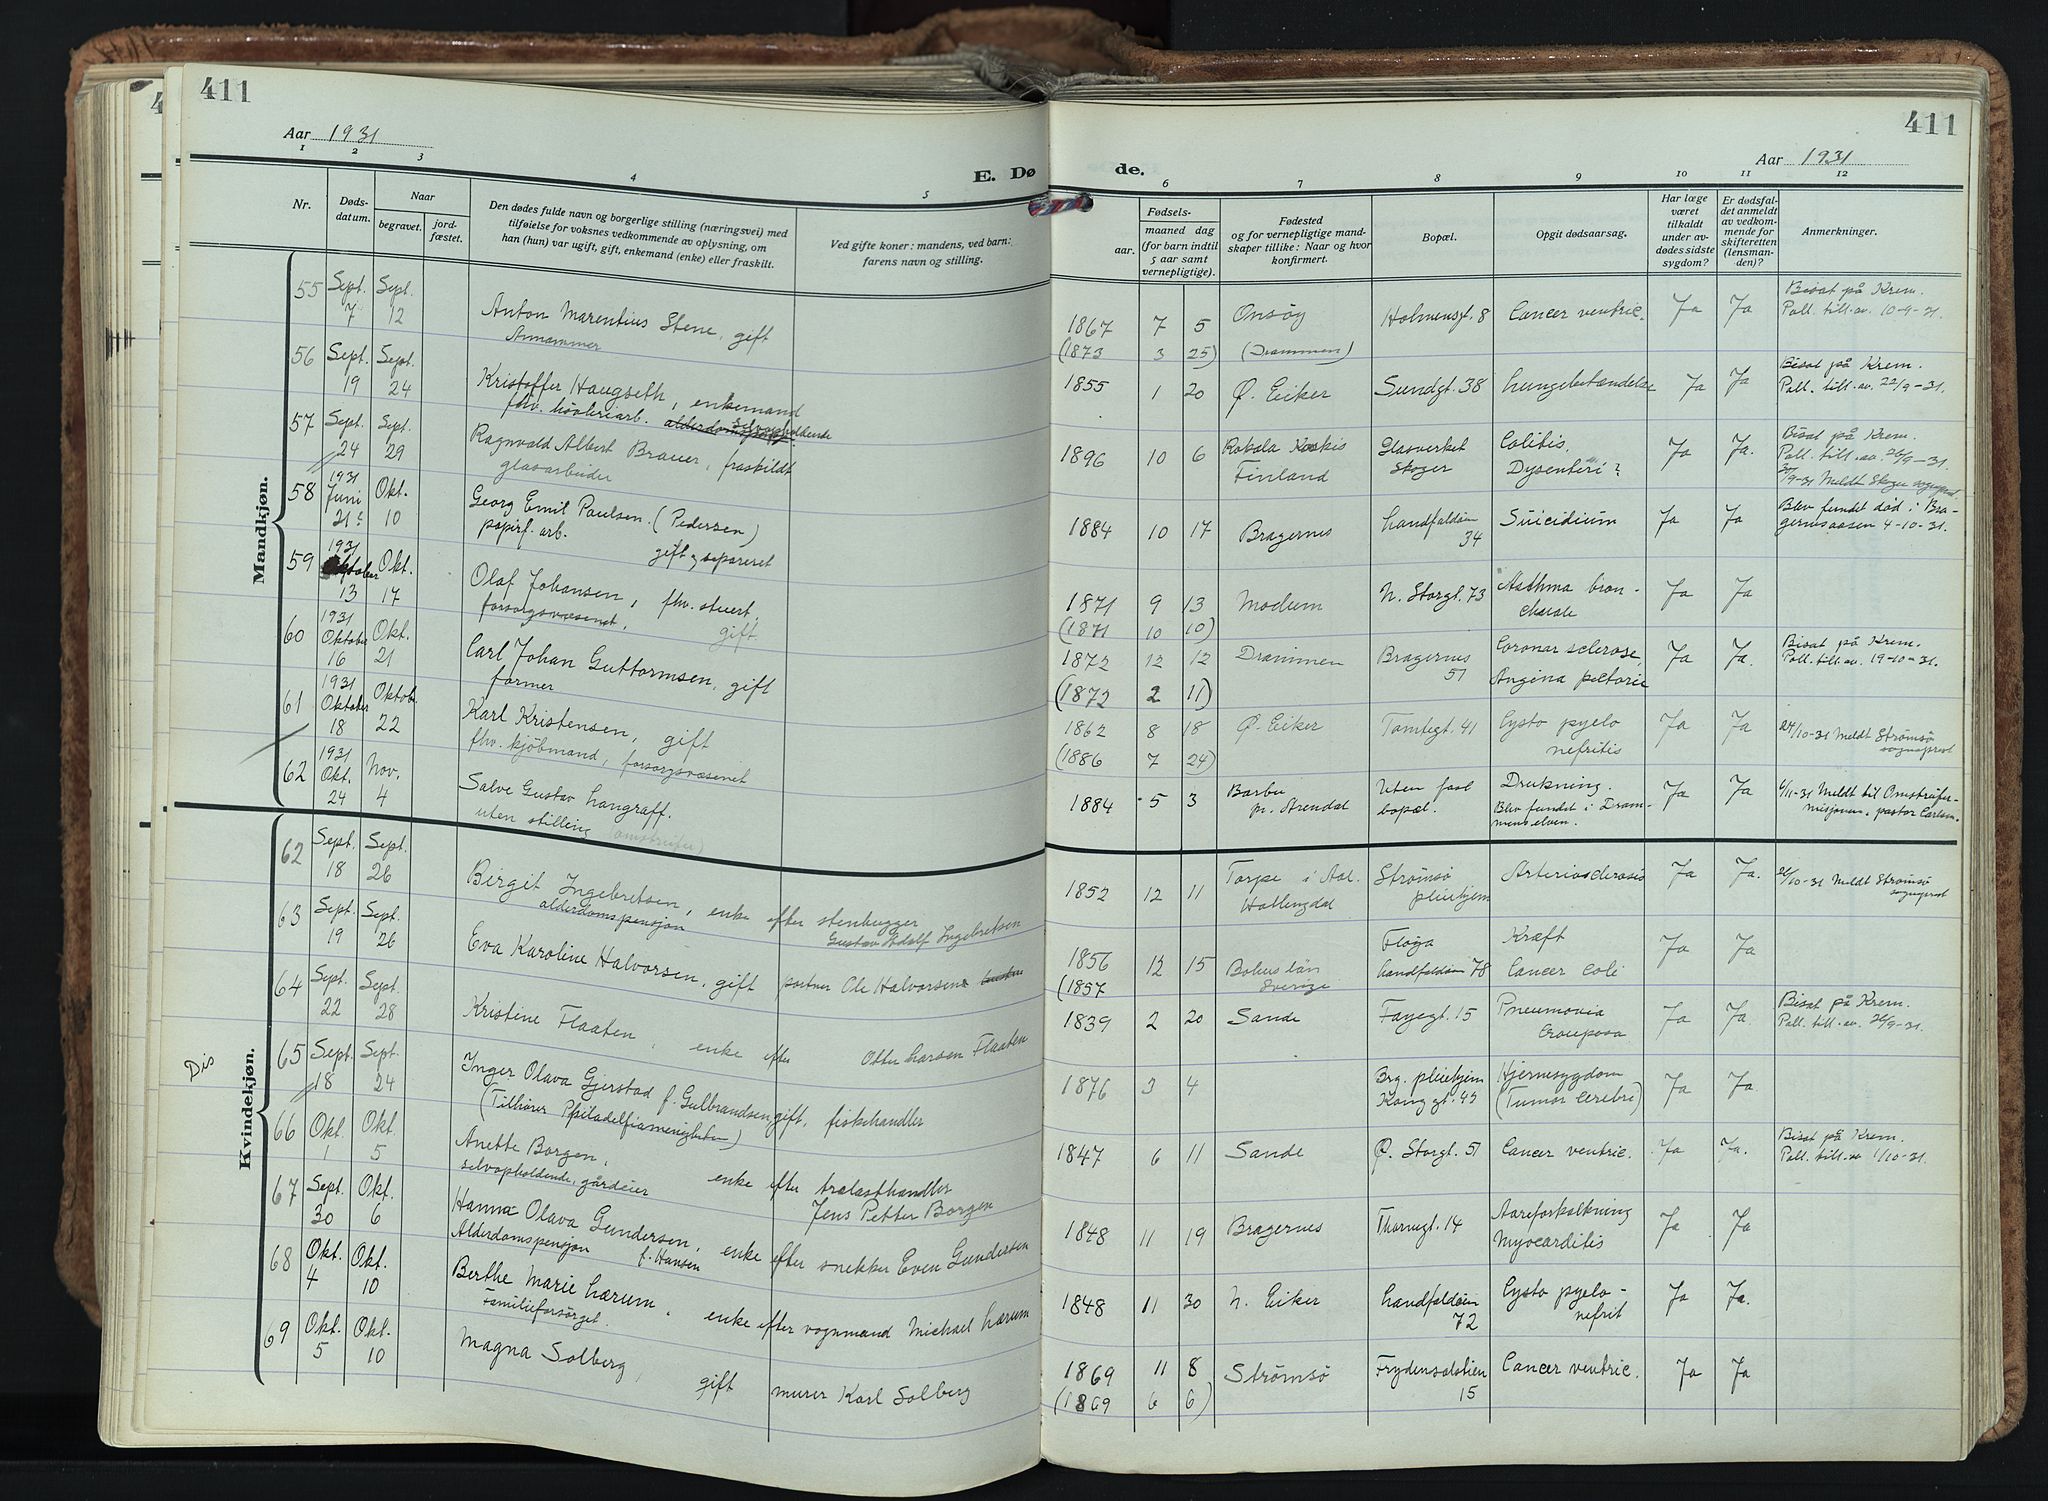 411
Aar 1931
1 2 3 4 5
E. Dø
Nr.
Døds-
datum.
Naar
begravet.
jord-
fæstet.
Den dødes fulde navn og borgerlige stilling (næringsvei) med
tilføielse for voksnes vedkommende av oplysning, om
han (hun) var ugift, gift, enkemand (enke) eller fraskilt.
Ved gifte koner: mandens, ved barn:
farens navn og stilling.
Mandkjøn.
55 Sept. 7 Sept. 12
Anton Marentius Stene, gift
56 Sept. 19 Sept. 24
Kristoffer Haugseth, enkemand
fhv. høvleriarb. selvopholdende
57 Sept. 24 Sept. 29
Ragnvald Albert Brauer, fraskildt
glasarbeider
58 1931 Juni 21 Okt. 10
Georg Emil Paulsen. (Pedersen)
papirf. arb.
gift, separeret
59 1931 Oktober 13 Okt. 17
Olaf Johansen, fhv. stuert,
forsorgsvæsenet, gift
60 1931 Oktober 16 Okt. 21
Carl Johan Guttormsen, gift
former
61 1931 Oktober 18 Oktob. 22
Karl Kristensen, gift
fhv. kjøbmand, forsorgsvæsenet
62 1931 Okt. 24 Nov. 4
Salve Gustav Langraff.
uten stilling (omstreifer)
Kvindekjøn.
62 Sept. 18 Sept. 26
Birgit Ingebretsen, enke efter stenhugger
alderdomspensjon Gustav Adolf Ingebretsen
63 Sept. 19 Sept. 26
Eva Karoline Halvorsen, gift portner Ole Halvorsen
64 Sept. 22 Sept. 28
Kristine Flaaten, enke efter Otter Larsen Flaaten
Dis
65 Sept. 18 Sept. 24
Inger Olava Gjerstad f. Gulbrandsen, gift, fiskehandler
(Tilhører Philadelfiamenigheten)
66 Okt. 1 Okt. 5
Anette Borgen, enke efter trælasthandler
selvopholdende, gårdeier Jens Petter Borgen
67 Sept. 30 Okt. 6
Hanna Olava Gundersen, enke efter snekker Even Gundersen
Alderdomspensjon f. Hansen
68 Okt. 4 Okt. 10
Berthe Marie Lærum, enke efter vognmand Michael Lærum
Familieforsørget.
69 Okt. 5 Okt. 10
Magna Solberg, gift murer Karl Solberg
411
Aar 1931
de.
6 7 8 9 10 11 12
Fødsels-
aar.
maaned dag
(for barn indtil
5 aar samt
vernepligtige).
Fødested
og for vernepligtige mand-
skaper tillike: Naar og hvor
konfirmert.
Bopæl.
Opgit dødsaarsag.
Har læge
været
tilkaldt
under av-
dødes sidste
sygdom?
Er dødsfal-
det anmeldt
av vedkom-
mende for
skifteretten
(lensman-
den)?
Anmerkninger.
1867 7 5 Onsøy Holmensgt. 8 Cancer ventric. Ja Ja Bisat på Krem.
Poll. till. av. 10-9-31.
(1873 3 25) (Drammen)
1855 1 20 Ø. Eiker Sundgt. 38 Lungebetændelse Ja Ja Bisat på Krem.
Poll. till. av. 22/9-31.
1896 10 6 Rokala Koskis Finland Glasverket Skoger Colitis, Dysenteri? Ja Ja. Bisat på Krem.
Poll. till. av. 26/9-31.
30/9-31 Meldt Skoger sogneprest.
1884 10 17 Bragernes Landfaldøen 34 Suicidium Ja Ja Blev fundet død i Bra-
gernesaasen 4-10-31.
1871 9 13 Modum N. Storgt. 73 Asthma bron-
chiale Ja Ja
(1871 10 10)
1872 12 12 Drammen Bragernes 51 Coronar sclerose, Angina pectoris Ja Ja. Bisat på Krem.
Poll. till. av. 19-10-31.
(1872 2 11)
1862 8 18 Ø. Eiker Tomtegt. 41 Cysto pyelo
nefritis Ja Ja 24/10-31 Meldt Strømsø
sogneprest
(1886 7 24)
1884 5 3 Barbu
pr. Arendal Uten fast
bopæl. Drukning.
Blev fundet i Dram-
menselven. Ja Ja 6/11-31 Meldt til Omstreifer-
misjonen, pastor Carlsen.
1852 12 11 Torpe i Aal.
Hallingdal Strømsø
pleiehjem Arteriosclerosis Ja Ja. 26/10-31 Meldt Strømsø
sogneprest
1856 12 15 Bohus län
Sverige Fløya
Landfaldøen 78 Kræft
Cancer coli Ja Ja
(1857
1839 2 20 Sande Fayegt. 15 Pneumonia
Crouposa Ja Ja. Bisat på Krem.
Poll. till. av. 26/9-31.
1876 3 4 Brg. pleiehjem
Konggt. 43 Hjernesygdom
(Tumor Cerebri) Ja Ja.
1847 6 11 Sande Ø. Storgt. 51 Cancer ventric. Ja Ja. Bisat på Krem.
Poll. till. av 1/10-31.
1848 11 19 Bragernes Thornegt. 14 Aareforkalkning
Myocarditis Ja Ja
1848 11 30 N. Eiker Landfaldøen
72 Cysto pyelo-
nefrit Ja Ja.
1869 11 8 Strømsø Frydensalslien
15 Cancer ventric. Ja Ja
(1869 6 6)